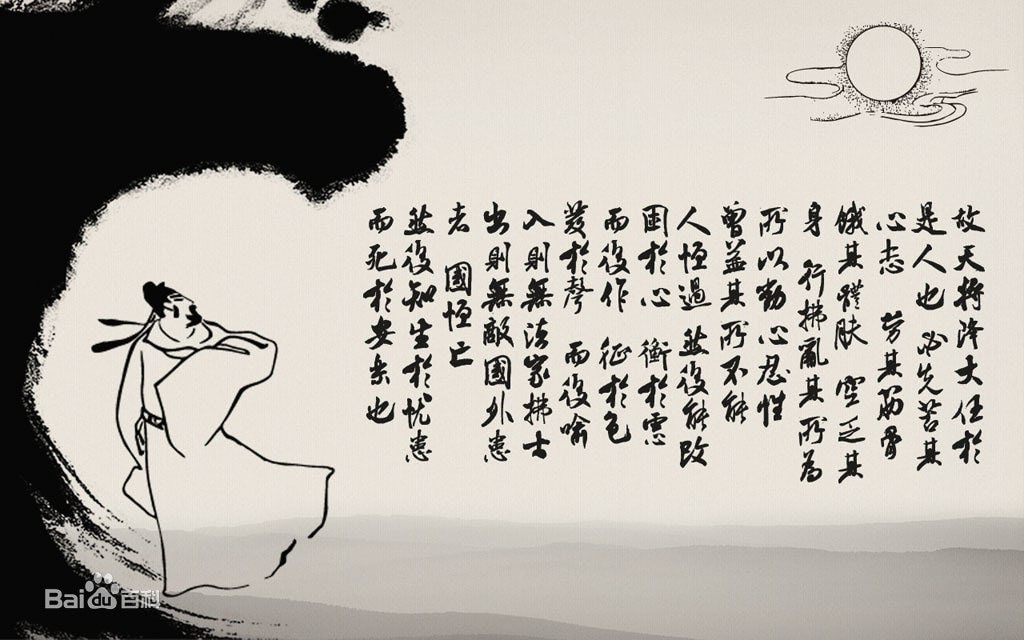 故天將降大任於
是人也 必先苦其
心志 劳其筋骨
餓其體肤 空乏其
身 行拂亂其所為
所以動心忍性
曾益其所不能
人恒過 然後能改
困於心 衡於慮
而後作 征於色
發於聲 而後喻
入則無法家拂士
出則無敵國外患
者 國恒亡
然後知生於忧患
而死於安樂也
Baidu百科